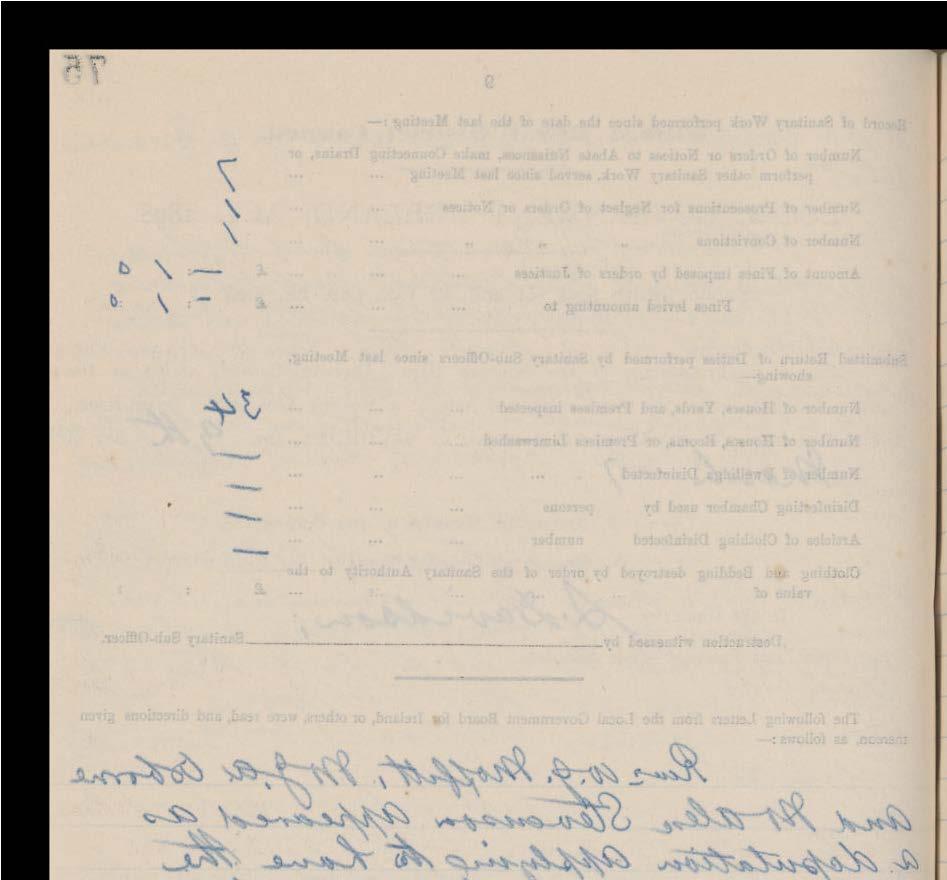 75
9
Record of Sanitary Work performed since the date of the last Meeting :—
Number of Orders or Notices to Abate Nuisances, make Connecting Drains, or
perform other Sanitary Work, served since last Meeting ... ... 7
Number of Prosecutions for Neglect of Orders or Notices ... ... 1
Number of Convictions „ „ „ ... ... 1
Amount of Fines imposed by orders of Justices ... ... ... £ — : 1 : 0
Fines levied amounting to ... ... ... £ — : 1 : 0
Submitted Return of Duties performed by Sanitary Sub-Officers since last Meeting,
showing—
Number of Houses, Yards, and Premises inspected ... ... ... 34
Number of Houses, Rooms, or Premises Limewashed ... ... —
Number of Dwellings Disinfected ... ... ... —
Disinfecting Chamber used by persons ... ... ... —
Articles of Clothing Disinfected number ... ... ... —
Clothing and Bedding destroyed by order of the Sanitary Authority to the
value of ... ... ... ... £ : :
Destruction witnessed by Sanitary Sub-Officer.
The following Letters from the Local Government Board for Ireland, or others, were read, and directions given
thereon, as follows :—
Rev W. J. Moffitt, W. J. A. Osborne
and Mr Alex Stevenson appeared as
a deputation applying to have the